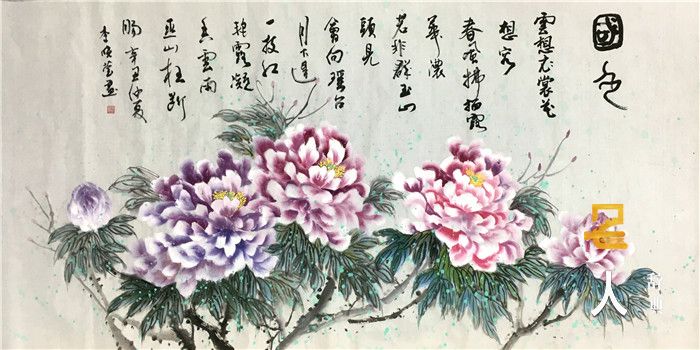 國色
雲想衣裳花
想容
春風拂檻露
華濃
若非群玉山
頭見
會向瑤台
月下逢
一枝紅
艷露凝
香雲雨
巫山枉斷
腸辛丑仲夏
李
人